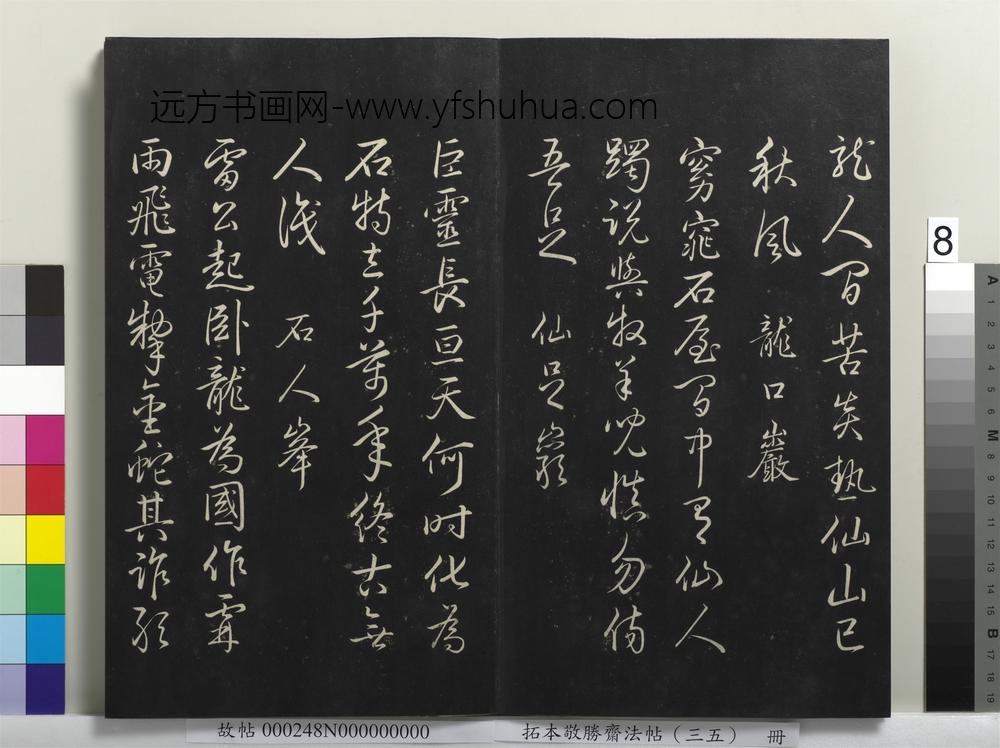 远方书画网-www.yfshuhua.com
龍人間苦炎熱仙山已
秋風 龍口巖
窈窕石屋間中有仙人
躅說與牧羊兒慎勿傷
吾足 仙足巖
巨靈長亘天何時化為
石特立千萬年終古無
人識 石人峯
雷公起臥龍為國作霖
雨飛電掣金蛇其誰敢
8
故帖 000248N000000000
拓本敬勝齋法帖（三五） 冊
A 1 2 3 4 5 6 M 8 9 10 11 12 13 14 15 B 17 18 19